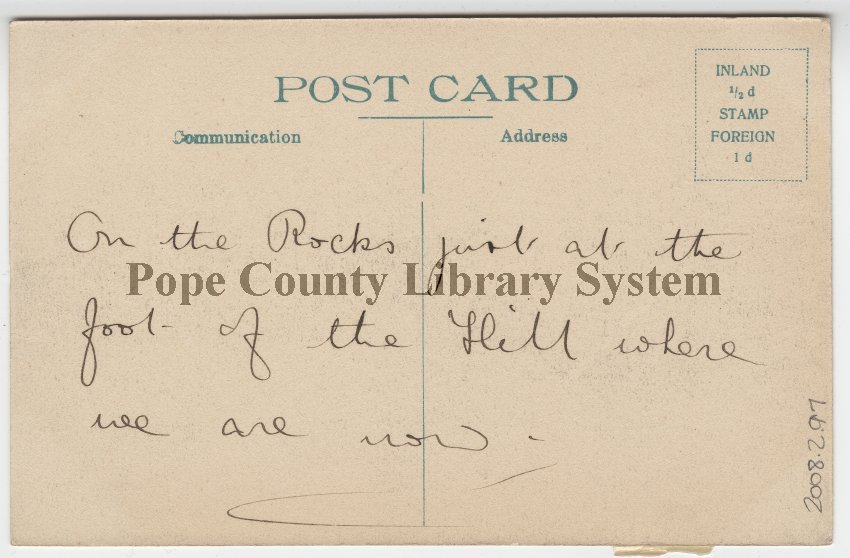 POST CARD
Communication
Address
INLAND
1/2 d
STAMP
FOREIGN
1 d
On the Rocks just at the
Pope County Library System
foot of the Hill where
we are now.
2008.2.97